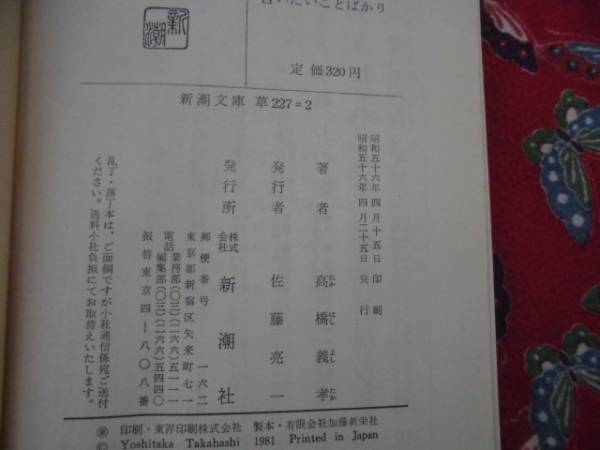 言いたいことばかり
新潮
定価320円
新潮文庫 草227=2
昭和五十六年四月十五日 印刷
昭和五十六年四月二十五日 発行
著者 高橋義孝
たか はし よし たか
発行者 佐藤亮一
発行所 株式会社 新潮社
郵便番号 一六二
東京都新宿区矢来町七一
電話 業務部(〇三)(二六六)五一一一
編集部(〇三)(二六六)五四四〇
振替東京四―八〇八番
乱丁・落丁本は、ご面倒ですが小社通信係宛ご送付
ください。送料小社負担にてお取替えいたします。
印刷・東洋印刷株式会社 製本・有限会社加藤新栄社
© Yoshitaka Takahashi 1981 Printed in Japan